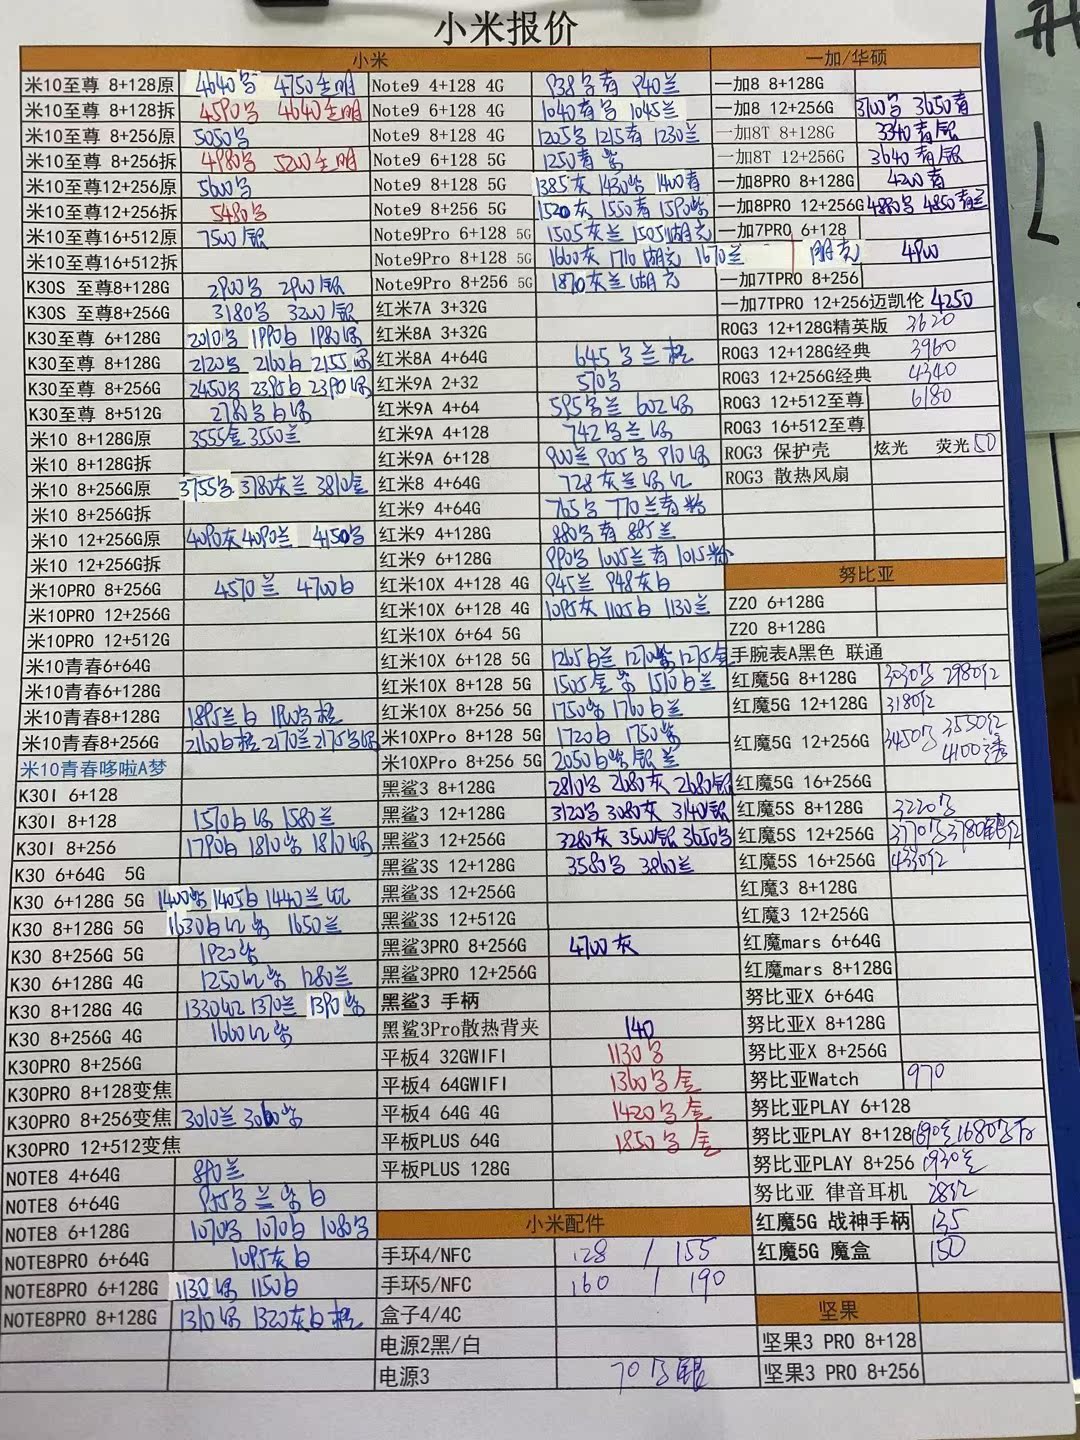 小米报价
小米
一加/华硕
米10至尊 8+128原 4640 4750
米10至尊 8+128拆 4590 4640
米10至尊 8+256原 5050
米10至尊 8+256拆 4980 5200
米10至尊12+256原 5600
米10至尊12+256拆 5480
米10至尊16+512原 7500银
米10至尊16+512拆
K30S 至尊8+128G 2900 2900银
K30S 至尊8+256G 3180 3200银
K30至尊 6+128G 2010 1990白 1980绿
K30至尊 8+128G 2120 2160白 2155绿
K30至尊 8+256G 2450 2395白 2390绿
K30至尊 8+512G 2780 白绿
米10 8+128G原 3555金 3550兰
米10 8+128G拆
米10 8+256G原 3755 3780灰兰 3810金
米10 8+256G拆
米10 12+256G原 4090灰 4090兰 4150
米10 12+256G拆
米10PRO 8+256G 4570兰 4700白
米10PRO 12+256G
米10PRO 12+512G
米10青春6+64G
米10青春6+128G
米10青春8+128G 1895兰白 1900
米10青春8+256G 2160白桃 2170兰 2175
米10青春哆啦A梦
K30I 6+128
K30I 8+128 1570白绿 1580兰
K30I 8+256 1790白 1810紫 1810绿
K30 6+64G 5G
K30 6+128G 5G 1400紫 1405白 1440兰红
K30 8+128G 5G 1630白红紫 1650兰
K30 8+256G 5G 1920紫
K30 6+128G 4G 1250红紫 1280兰
K30 8+128G 4G 1330红 1370兰 1390紫
K30 8+256G 4G 1660红紫
K30PRO 8+256G
K30PRO 8+128变焦
K30PRO 8+256变焦 3010兰 3060紫
K30PRO 12+512变焦
NOTE8 4+64G 890兰
NOTE8 6+64G 兰紫白
NOTE8 6+128G 1070 1070白 1080
NOTE8PRO 6+64G 1095灰白
NOTE8PRO 6+128G 1130绿 1150白
NOTE8PRO 8+128G 1310绿 1320灰白橙
Note9 4+128 4G 938 青 940兰
Note9 6+128 4G 1040青 1045兰
Note9 8+128 4G 1205 1215青 1230兰
Note9 6+128 5G 1250青紫
Note9 8+128 5G 1385灰 1430紫 1400青
Note9 8+256 5G 1520灰 1550青 1590紫
Note9Pro 6+128 5G 1505灰兰 1505湖光
Note9Pro 8+128 5G 1600灰 1710湖光 1670兰
Note9Pro 8+256 5G 1870灰兰湖光
红米7A 3+32G
红米8A 3+32G
红米8A 4+64G 645 兰橙
红米9A 2+32 570
红米9A 4+64 595 兰 602绿
红米9A 4+128 742 兰绿
红米9A 6+128 900兰 905 910绿
红米8 4+64G 728灰兰绿红
红米9 4+64G 765 770兰青粉
红米9 4+128G 880 青 885兰
红米9 6+128G 990 1005兰青 1015粉
红米10X 4+128 4G 945兰 948灰白
红米10X 6+128 4G 1095灰 1105白 1130兰
红米10X 6+64 5G
红米10X 6+128 5G 1265白兰 1270紫 1275金
红米10X 8+128 5G 1505金紫 1510白兰
红米10X 8+256 5G 1750紫 1760白兰
米10XPro 8+128 5G 1720白 1750紫
米10XPro 8+256 5G 2050白紫银兰
黑鲨3 8+128G 2810 2680灰 2680银
黑鲨3 12+128G 3120 3080灰 3140银
黑鲨3 12+256G 3280灰 3500银 3650
黑鲨3S 12+128G 3580 3860兰
黑鲨3S 12+256G
黑鲨3S 12+512G
黑鲨3PRO 8+256G 4700灰
黑鲨3PRO 12+256G
黑鲨3 手柄
黑鲨3Pro散热背夹 140
平板4 32GWIFI 1130
平板4 64GWIFI 1360 金
平板4 64G 4G 1420 金
平板PLUS 64G 1850 金
平板PLUS 128G
小米配件
手环4/NFC 128 / 155
手环5/NFC 160 / 190
盒子4/4C
电源2黑/白
电源3 70 银
一加8 8+128G
一加8 12+256G 3700 3650青
一加8T 8+128G 3340青银
一加8T 12+256G 3640青银
一加8PRO 8+128G 4200青
一加8PRO 12+256G 4880 4850青兰
一加7PRO 6+128
湖光 4900
一加7TPRO 8+256
一加7TPRO 12+256迈凯伦 4250
ROG3 12+128G精英版 3620
ROG3 12+128G经典 3960
ROG3 12+256G经典 4340
ROG3 12+512至尊 6180
ROG3 16+512至尊
ROG3 保护壳 炫光 荧光50
ROG3 散热风扇
努比亚
Z20 6+128G
Z20 8+128G
手腕表A黑色 联通
红魔5G 8+128G 3030 2980红
红魔5G 12+128G 3180红
红魔5G 12+256G 3450 3550红 4100透
红魔5G 16+256G
红魔5S 8+128G 3220
红魔5S 12+256G 3770 3780银红
红魔5S 16+256G 4330红
红魔3 8+128G
红魔3 12+256G
红魔mars 6+64G
红魔mars 8+128G
努比亚X 6+64G
努比亚X 8+128G
努比亚X 8+256G
努比亚Watch 970
努比亚PLAY 6+128
努比亚PLAY 8+128 1690兰 1680
努比亚PLAY 8+256 1930兰
努比亚 律音耳机 28红
红魔5G 战神手柄 135
红魔5G 魔盒 150
坚果
坚果3 PRO 8+128
坚果3 PRO 8+256